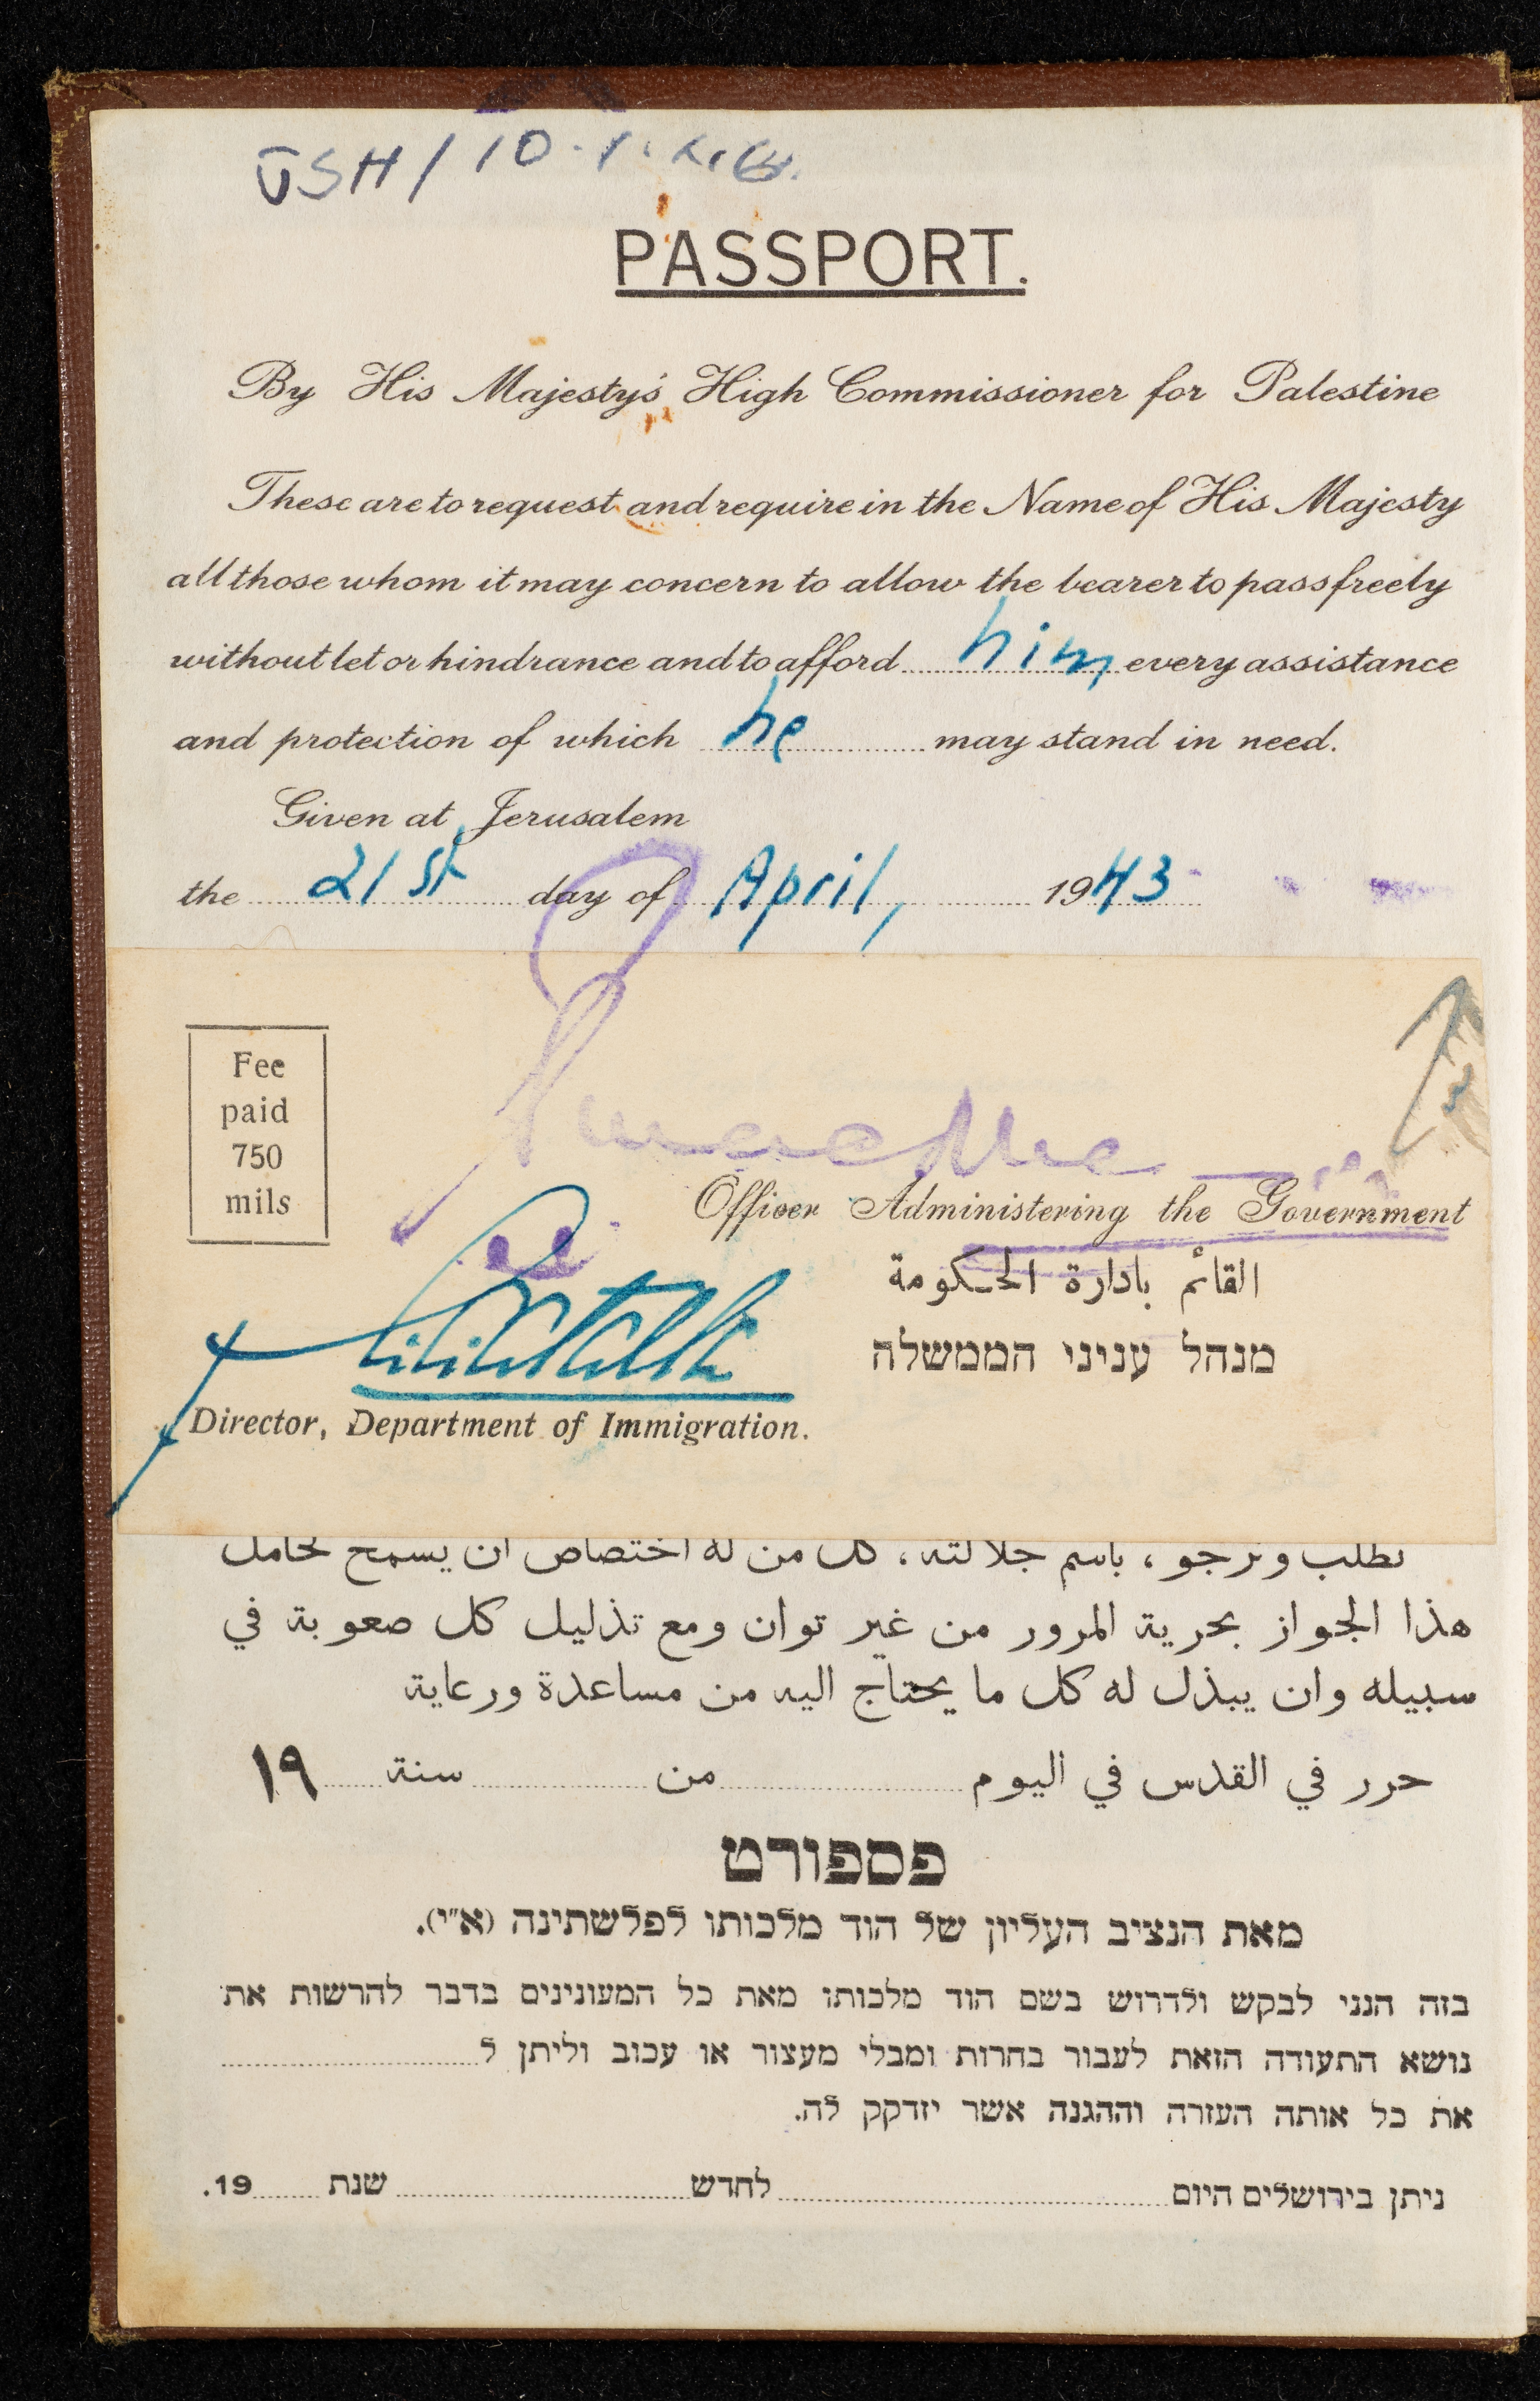 JSH/10.
PASSPORT.
By His Majesty's High Commissioner for Palestine
These are to request and require in the Name of His Majesty
all those whom it may concern to allow the bearer to pass freely
without let or hindrance and to afford him every assistance
and protection of which he may stand in need.
Given at Jerusalem
the 21st day of April, 1943
Fee
paid
750
mils
Officer Administering the Government
القائم بادارة الحكومة
מנהל עניני הממשלה
Director, Department of Immigration.
نطلب ونرجو ، باسم جلالته ، كل من له اختصاص ان يسمح لحامل
هذا الجواز بحرية المرور من غير توان ومع تذليل كل صعوبة في
سبيله وان يبذل له كل ما يحتاج اليه من مساعدة ورعاية
حرر في القدس في اليوم من سنة ١٩
פספורט
מאת הנציב העליון של הוד מלכותו לפלשתינה (א״י).
בזה הנני לבקש ולדרוש בשם הוד מלכותו מאת כל המעונינים בדבר להרשות את
נושא התעודה הזאת לעבור בחרות ומבלי מעצור או עכוב וליתן ל
את כל אותה העזרה וההגנה אשר יזדקק לה.
ניתן בירושלים היום לחדש שנת 19.